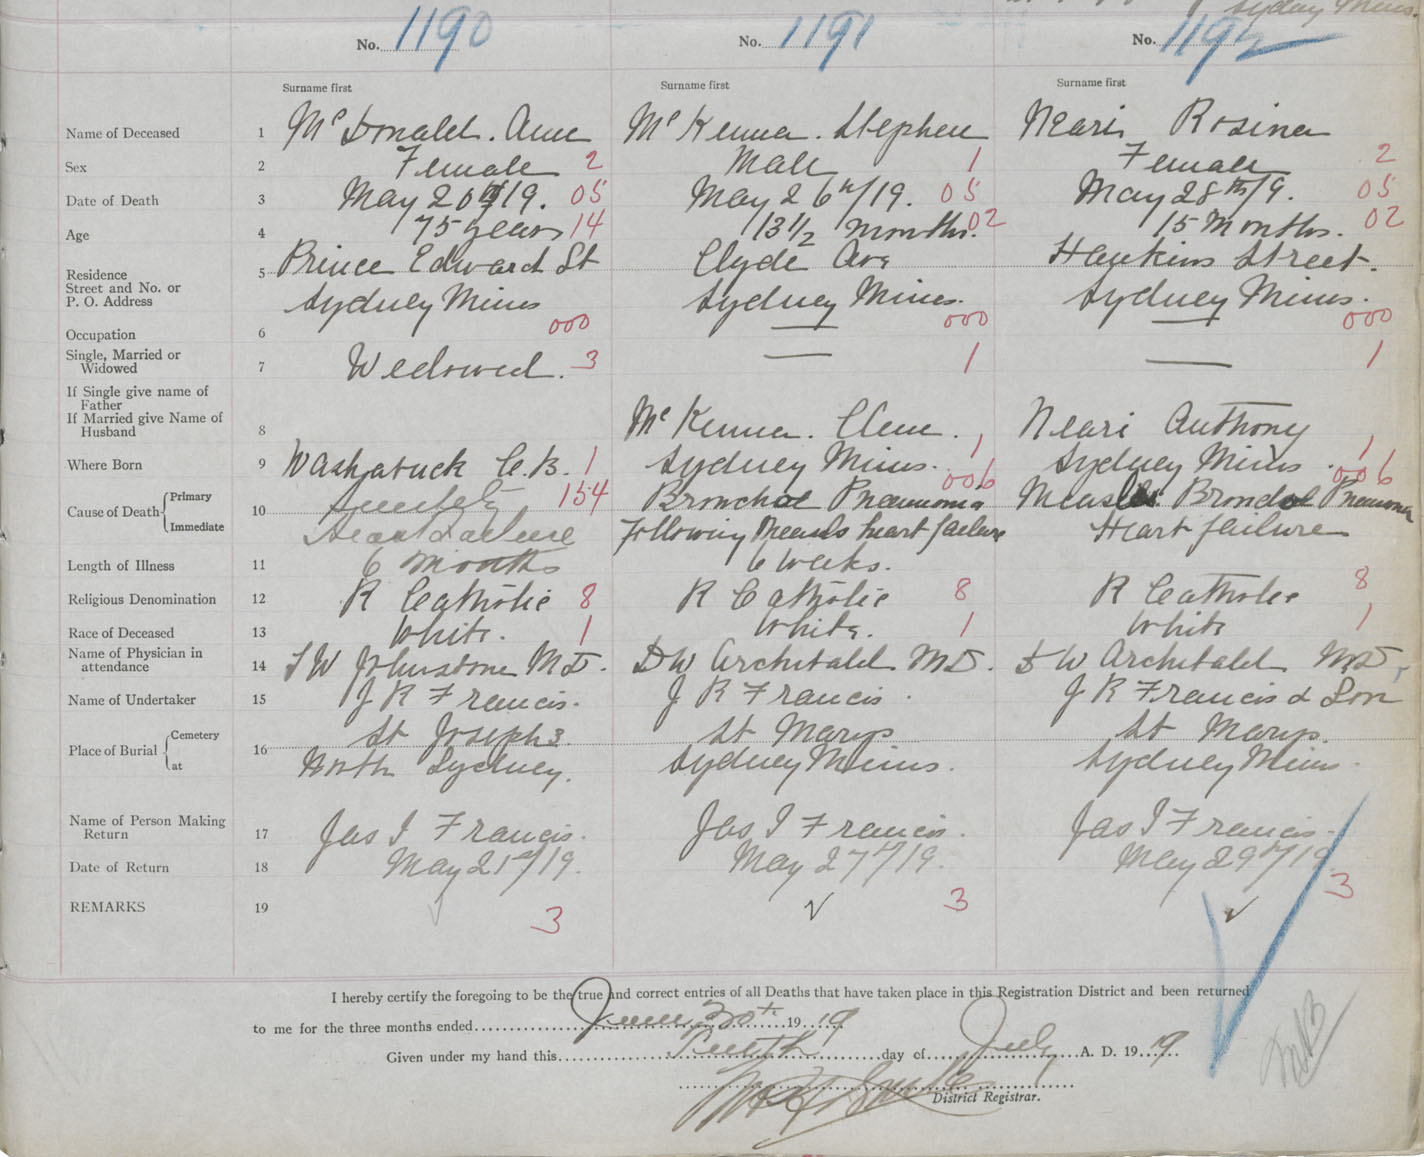 Sydney Mines.
No. 1190 No. 1191 No. 1192
Surname first Surname first Surname first
Name of Deceased 1 McDonald. Ann McKenna. Stephen Neari Rosina
Sex 2 Female 2 Male 1 Female 2
Date of Death 3 May 20th/19. 05 May 26th/19. 05 May 28th/19. 05
Age 4 75 years 14 13 1/2 months. 02 15 Months. 02
Residence 5 Prince Edward St Clyde Ave Hawkins Street.
Street and No. or
P. O. Address Sydney Mines Sydney Mines. Sydney Mines.
Occupation 6 000 — 000 — 000
Single, Married or
Widowed 7 Widowed. 3 — 1 — 1
If Single give name of
Father
If Married give Name of
Husband 8 McKenna. Clem. Neari Anthony
Where Born 9 Washabuck C.B. 1 Sydney Mines. 1 Sydney Mines. 1
Cause of Death { Primary 10 Senility 154 Broncho Pneumonia 006 Measles Broncho Pneumonia 006
Immediate Heart Failure Following Measls heart failure Heart failure
Length of Illness 11 6 months 6 weeks.
Religious Denomination 12 R Catholic 8 R Catholic 8 R Catholic 8
Race of Deceased 13 White. 1 White. 1 White 1
Name of Physician in
attendance 14 Johnstone MD. DW Archibald MD. DW Archibald MD.
Name of Undertaker 15 J R Francis. J R Francis. J R Francis & Son
Place of Burial { Cemetery 16 St Josephs. St Marys St Marys.
at North Sydney. Sydney Mines. Sydney Mines.
Name of Person Making
Return 17 Jas I Francis. Jas I Francis. Jas I Francis.
Date of Return 18 May 21st/19. May 27th/19. May 29th/19.
REMARKS 19 3 3 3
I hereby certify the foregoing to be the true and correct entries of all Deaths that have taken place in this Registration District and been returned
to me for the three months ended June 30th 1919
Given under my hand this Tenth day of July A. D. 1919
District Registrar.